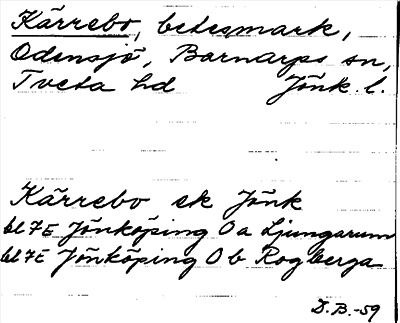 Kärrebo, betesmark,
Odensjö, Barnarps sn,
Tveta hd Jönk. l.
Kärrebo ek Jönk
bl 7E Jönköping 0a Ljungarum
bl 7E Jönköping 0b Rogberga
D.B.-59